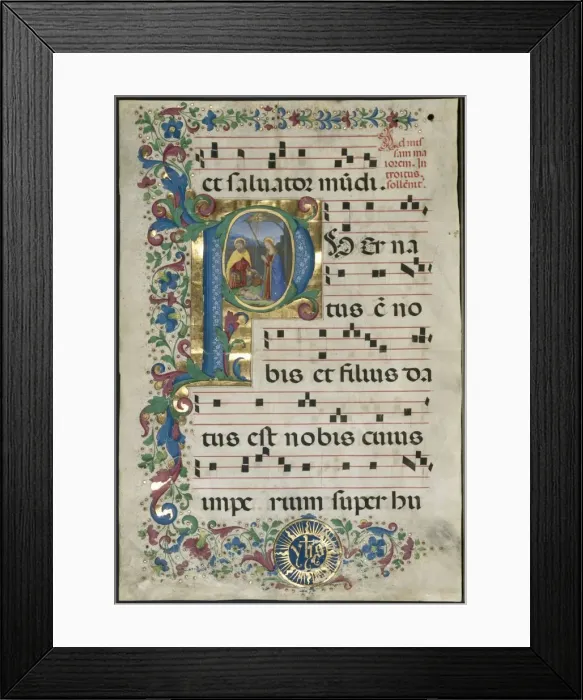 et saluator mūdi.
Ad mis
sam ma
iorem. In
troitus.
sollēnit.
PUer na
tus ē no
bis et filius da
tus est nobis cuius
impe rium super hu
yhs